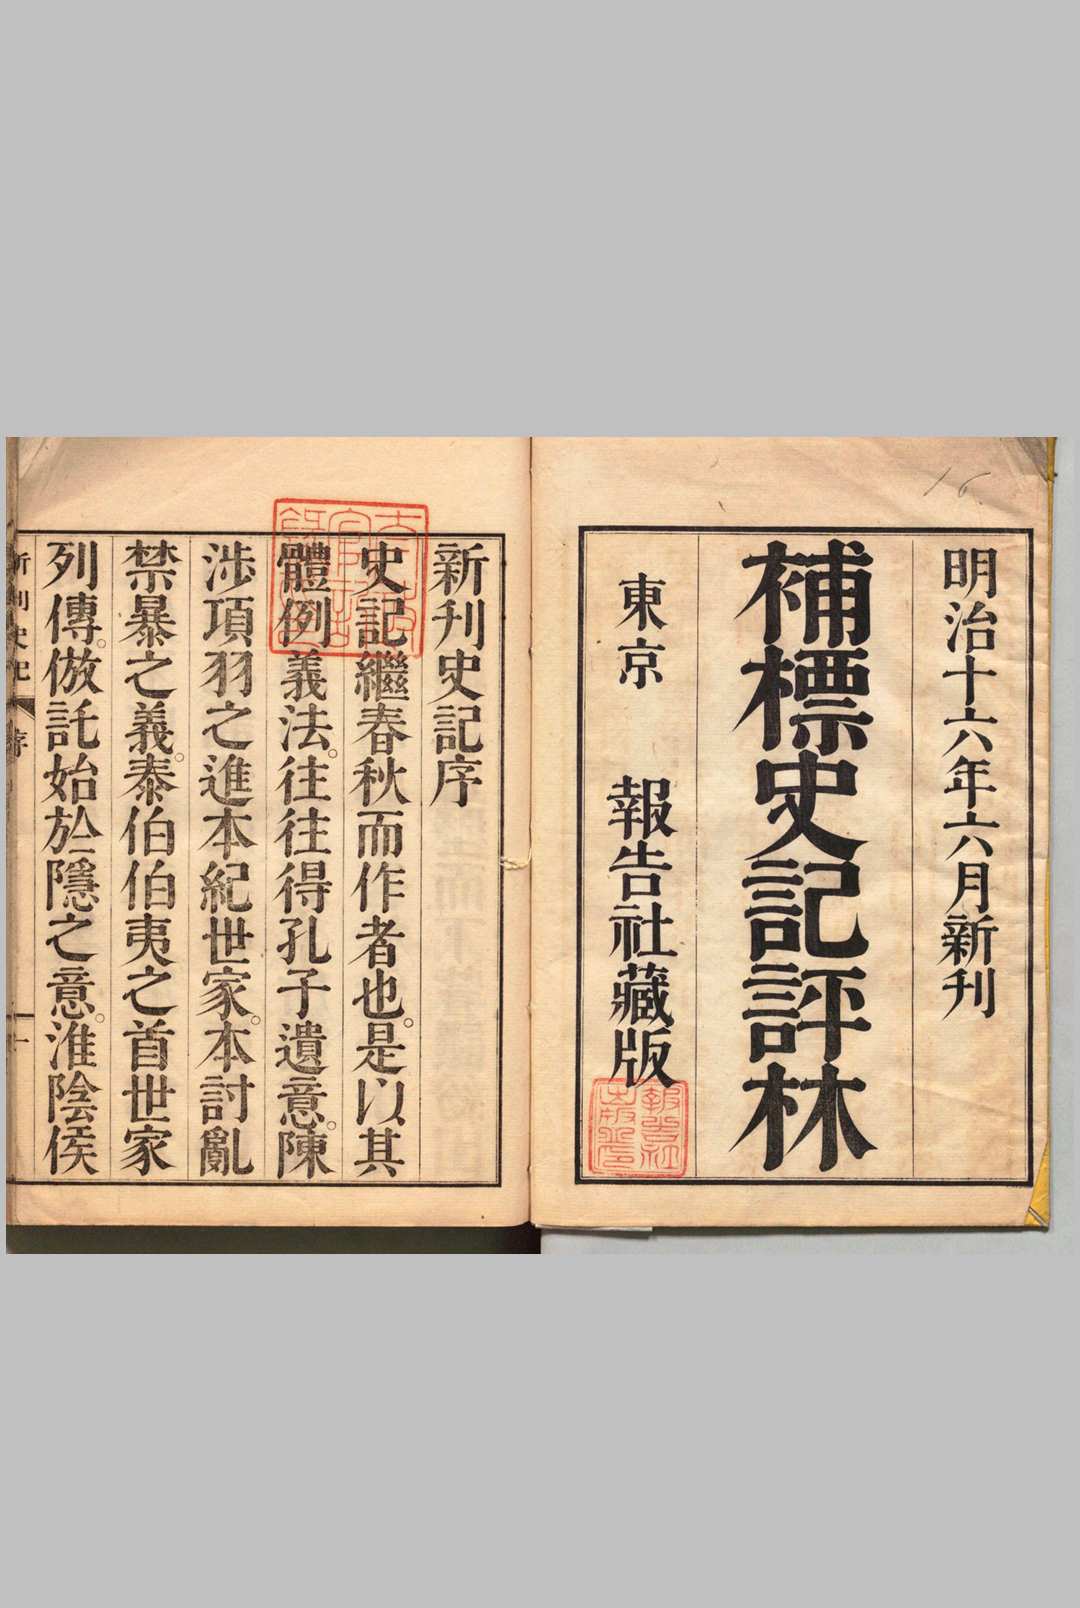 明治十六年六月新刊
補標史記評林
東京 報告社藏版
報告社
出版印
新刊史記序
史記繼春秋而作者也。是以其
體例義法。往往得孔子遺意。陳
涉項羽之進本紀世家。本討亂
禁暴之義。泰伯伯夷之首世家
列傳。倣託始於隱之意。淮陰侯
新刊史記 序 一
16